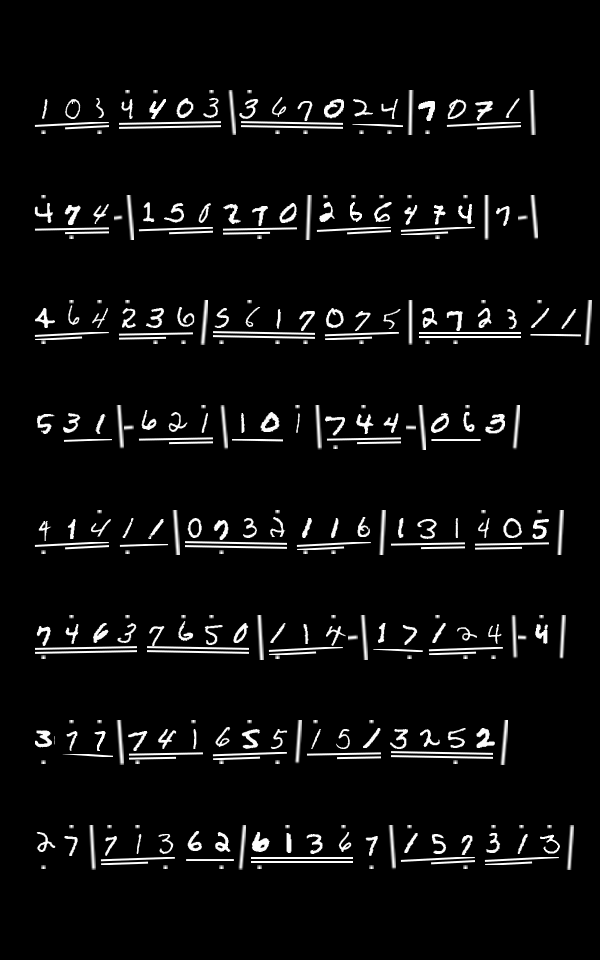 1 0 3 4 4 0 3 | 3 6 7 0 2 4 | 7 0 7 1 |
4 7 4 - | 1 5 0 2 7 0 | 2 6 6 4 7 4 | 7 - |
4 6 4 2 3 6 | 5 6 1 7 0 7 5 | 2 7 2 3 1 1 |
5 3 1 | - 6 2 1 | 1 0 1 | 7 4 4 - | 0 6 3 |
4 1 4 1 1 | 0 7 3 2 1 1 6 | 1 3 1 4 0 5 |
7 4 6 3 7 6 5 0 | 1 1 4 - | 1 7 1 2 4 | - 4 |
3 7 7 | 7 4 1 6 5 5 | 1 5 1 3 2 5 2 |
2 7 | 7 1 3 6 2 | 6 1 3 6 7 | 1 5 7 3 1 3 |